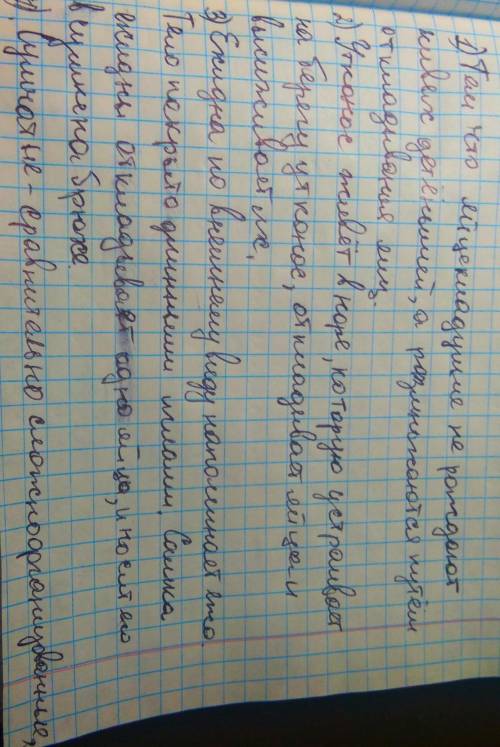 1) Тем что яйцекладущие не рождают
живых детёнышей, а размножаются путём
откладывания яиц.
2) Утконос живёт в норе, которую устраивает
на берегу утконос, откладывает яйца и
высиживает их.
3) Ехидна по внешнему виду напоминает ежа.
Тело покрыто длинными иглами. Самка
ехидны откладывает одно яйцо, и носит его
в сумке на брюхе.
4) Сумчатые - сравнительно сложнофрмированные,